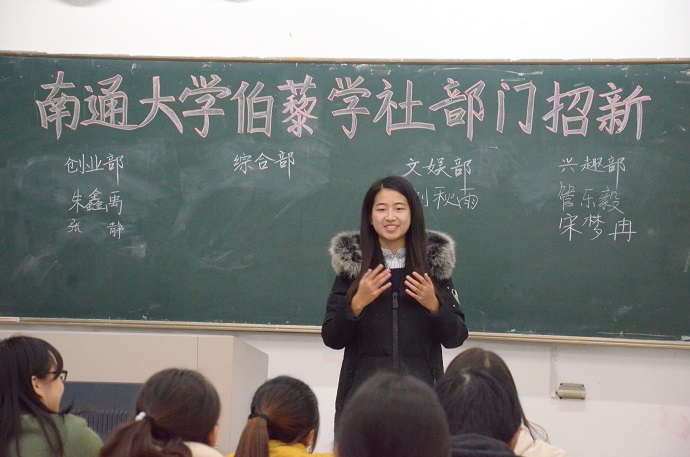 南通大学伯藜学社部门招新
创业部 综合部 文娱部 兴趣部
朱鑫禹 秋雨 管乐毅
张静 宋梦冉